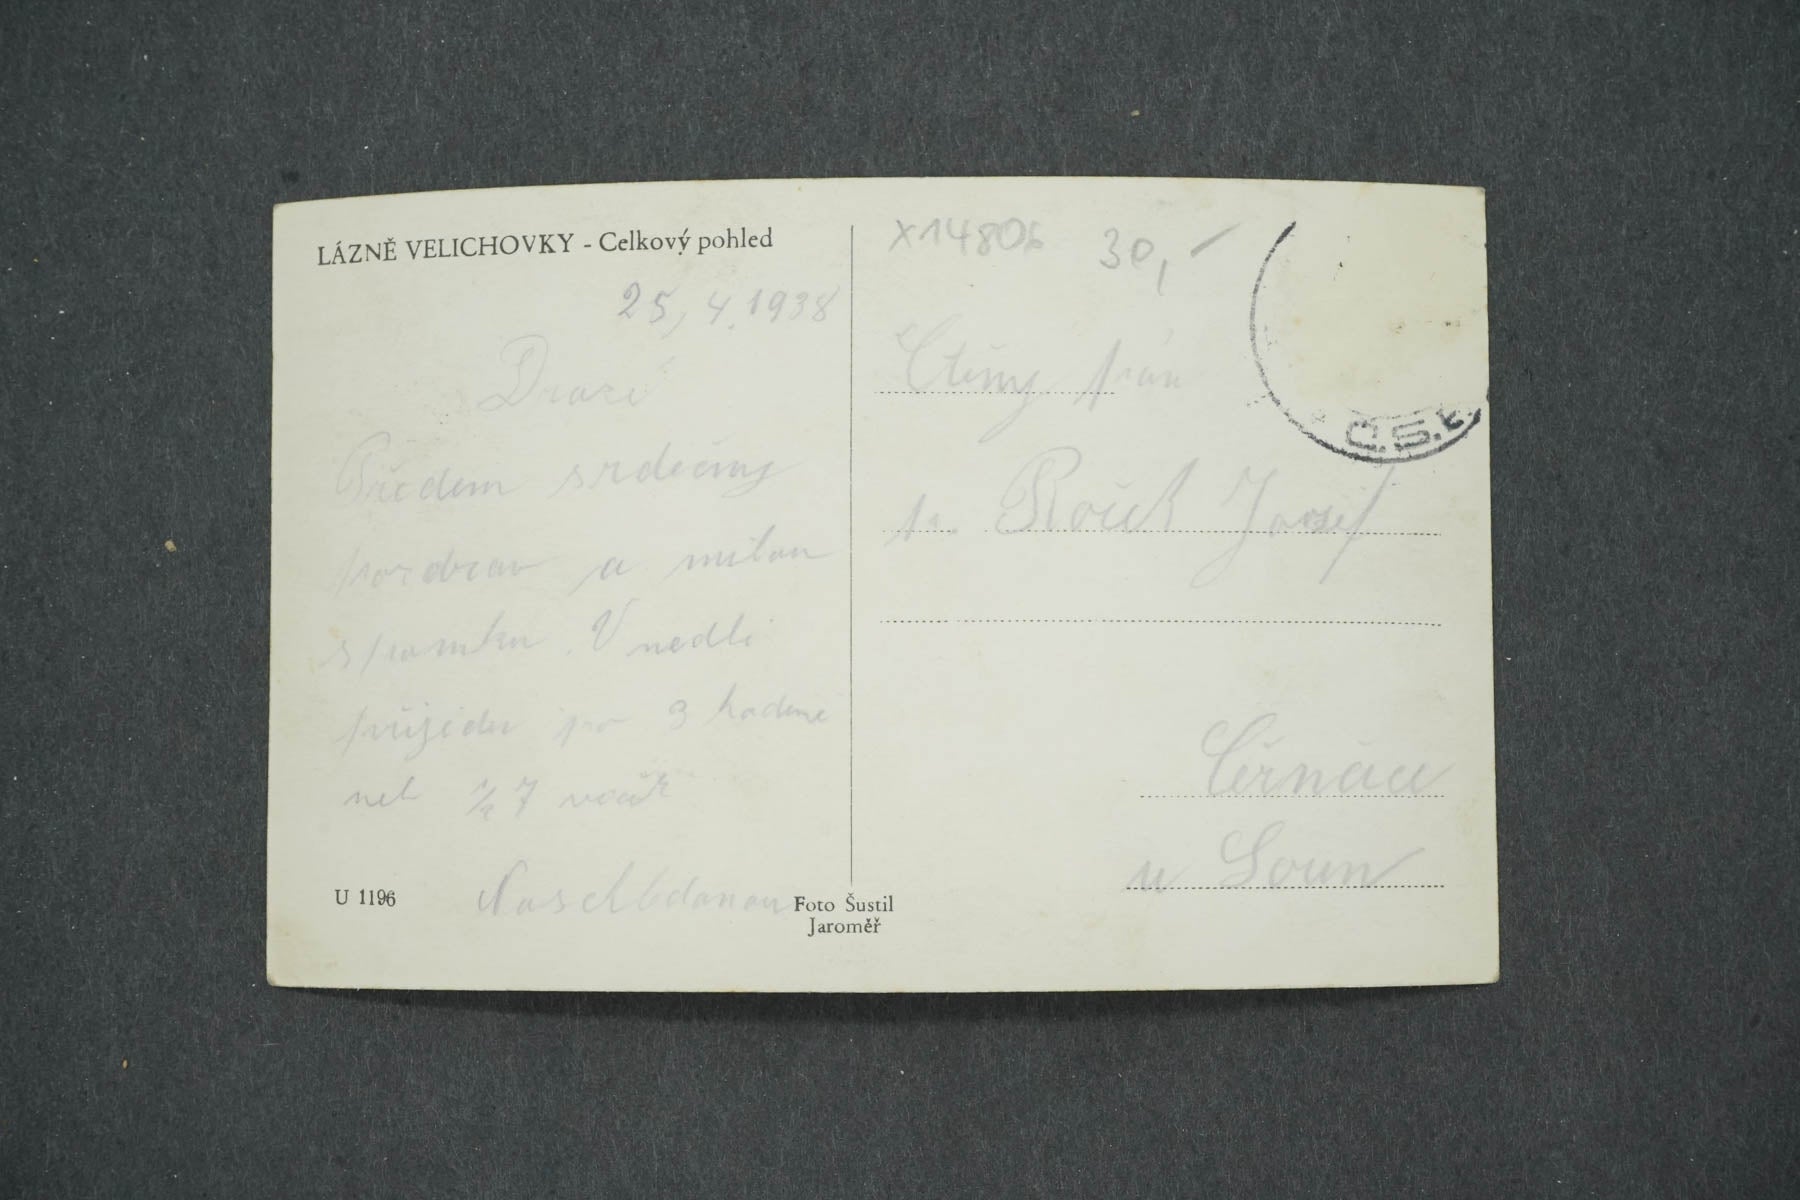 LÁZNĚ VELICHOVKY - Celkový pohled
25, 4. 1938
Drazí
Předem srdečný
pozdrav a milou
vpomku. V nedli
přijedu po 3 hodině
neb 1/2 7 večír
U 1196
Foto Šustil
Jaroměř
X14806 30,-
Ctěný pán
p. Josef
Černčice
u Loun
Č.S.R.